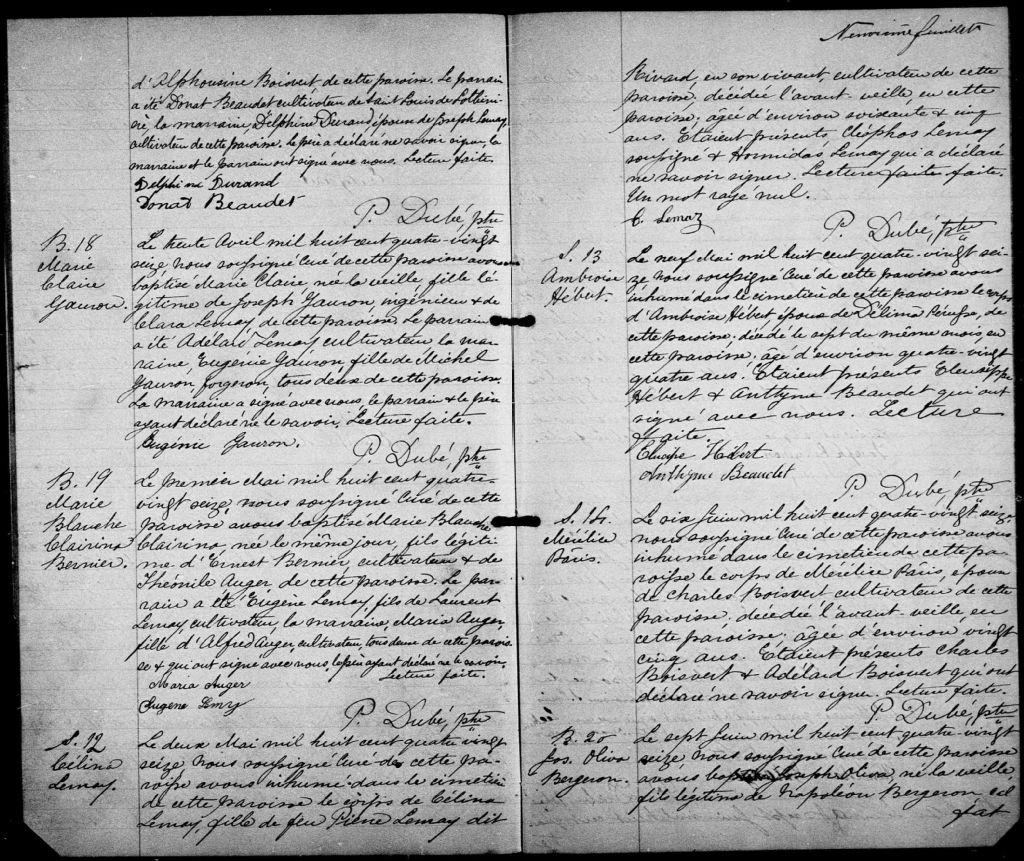 d'Alphonsine Boisvert de cette paroisse. Le parrain
a été Donat Beaudet cultivateur de Saint Louis de Lotbini-
ère, la marraine, Delphine Durand épouse de Joseph Lemay
cultivateur de cette paroisse. Le père a déclaré ne savoir signer, la
marraine et le parrain ont signé avec nous. Lecture faite
Delphine Durand
Donat Beaudet
P. Dubé, ptre
B. 18
Marie
Claire
Gauron.
Le trente Avril mil huit cent quatre-vingt
seize nous soussigné Curé de cette paroisse avons
baptisé Marie Claire, née la veille, fille lé-
gitime de Joseph Gauron, ingénieur & de
Clara Lemay, de cette paroisse. Le parrain
a été Adélard Lemay cultivateur la mar-
raine, Eugénie Gauron, fille de Michel
Gauron, forgeron, tous deux de cette paroisse.
La marraine a signé avec nous, le parrain & le père
ayant déclaré ne le savoir. Lecture faite.
Eugénie Gauron.
P. Dubé, ptre
B. 19
Marie
Blanche
Clairina
Bernier.
Le premier Mai mil huit cent quatre-
vingt seize, nous soussigné Curé de cette
paroisse avons baptisé Marie Blanche
Clairina, née le même jour, fils légiti-
me d'Ernest Bernier, cultivateur & de
Théonile Auger de cette paroisse. Le par-
rain a été Eugène Lemay, fils de Laurent
Lemay, cultivateur, la marraine, Maria Auger,
fille d'Alfred Auger, cultivateur, tous deux de cette parois-
se & qui ont signé avec nous, le père ayant déclaré ne le savoir.
Lecture faite.
Maria Auger
Eugene Lemy
P. Dubé, ptre
S. 12
Célina
Lemay.
Le deux Mai mil huit cent quatre-vingt
seize nous soussigné Curé de cette pa-
roisse avons inhumé dans le cimetière
de cette paroisse le corps de Célina
Lemay, fille de feu Pierre Lemay dit
Neuvième feuillet
Rivard, en son vivant, cultivateur de cette
paroisse, décédée l'avant-veille, en cette
paroisse, âgée d'environ soixante & cinq
ans. Étaient présents Cléophas Lemay
soussigné & Hormidas Lemay qui a déclaré
ne savoir signer. Lecture faite faite.
Un mot rayé nul.
C. Lemay
P. Dubé, ptre
S. 13
Ambroise
Hébert.
Le neuf Mai mil huit cent quatre-vingt sei-
ze nous soussigné Curé de cette paroisse avons
inhumé dans le cimetière de cette paroisse le corps
d'Ambroise Hébert époux de Délima, de
cette paroisse, décédé le sept du même mois, en
cette paroisse, âgé d'environ quatre-vingt
quatre ans. Étaient présents
Hébert & Anthyme Beaudet qui ont
signé avec nous. Lecture
faite.
Hébert
Anthyme Beaudet
P. Dubé, ptre
S. 14.
Mérélise
Pâris.
Le six Juin mil huit cent quatre-vingt seize,
nous soussigné Curé de cette paroisse avons
inhumé dans le cimetière de cette pa-
roisse le corps de Mérélise Pâris, épouse
de Charles Boisvert cultivateur de cette
paroisse, décédée l'avant-veille en
cette paroisse, âgée d'environ vingt
cinq ans. Étaient présents Charles
Boisvert & Adélard Boisvert qui ont
déclaré ne savoir signer. Lecture faite.
P. Dubé, ptre
B. 20
Jos. Oliva
Bergeron.
Le sept Juin mil huit cent quatre-vingt
seize, nous soussigné Curé de cette paroisse
avons baptisé Joseph Oliva, né la veille,
fils légitime de Napoléon Bergeron &